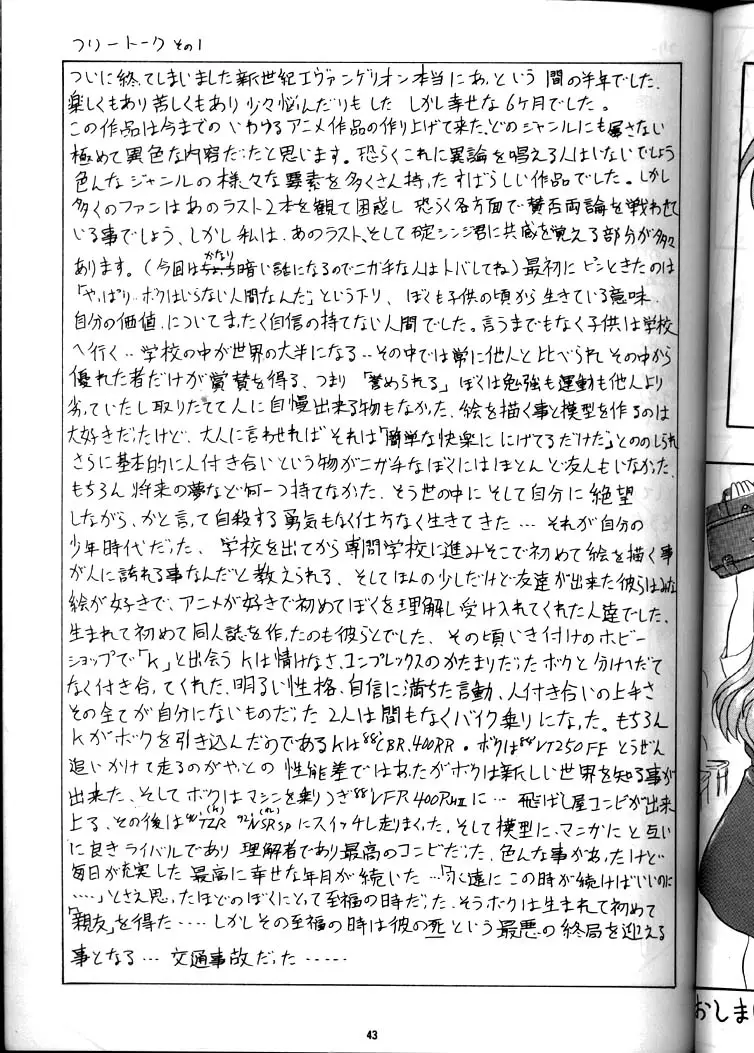 フリートーク その1
ついに終ってしまいました新世紀エヴァンゲリオン本当にあっという間の半年でした、
楽しくもあり苦しくもあり少々悩んだりもした しかし幸せな6ヶ月でした。
この作品は今までのいわゆるアニメ作品の作り上げて来た、どのジャンルにも属さない
極めて異色な内容だったと思います。恐らくこれに異論を唱える人はいないでしょう
色んなジャンルの様々な要素を多くさん持ったすばらしい作品でした。しかし
多くのファンはあのラスト2本を観て困惑し 恐らく各方面で賛否両論を戦わせて
いる事でしょう、しかし私は、あのラスト、そして碇シンジ君に共感を覚える部分が多々
あります。(今回はかなり暗い話になるのでニガ手な人はトバしてね)最初にピンときたのは
「やっぱりボクはいらない人間なんだ」という下り、ぼくも子供の頃から生きている意味、
自分の価値、についてまったく自信の持てない人間でした。言うまでもなく子供は学校
へ行く‥学校の中が世界の大半になる‥その中では常に他人と比べられその中から
優れた者だけが賞賛を得る、つまり「誉められる」ぼくは勉強も運動も他人より
劣っていたし取りたてて人に自慢出来る物もなかった、絵を描く事と模型を作るのは
大好きだったけど、大人に言わせればそれは「簡単な快楽ににげてるだけだ」とののしられ
さらに基本的に人付き合いという物がニガ手なぼくにはほとんど友人もいなかった、
もちろん将来の夢など何一つ持てなかった、そう世の中にそして自分に絶望
しながら、かと言って自殺する勇気もなく仕方なく生きてきた…それが自分の
少年時代だった、学校を出てから専門学校に進みそこで初めて絵を描く事
が人に誇れる事なんだと教えられる、そしてほんの少しだけど友達が出来た彼らはみな
絵が好きで、アニメが好きで初めてぼくを理解し受け入れてくれた人達でした、
生まれて初めて同人誌を作ったのも彼らとでした、その頃いき付けのホビー
ショップで「K」と出会うKは情けなさ、コンプレックスのかたまりだったボクと分けへだて
なく付き合ってくれた、明るい性格、自信に満ちた言動、人付き合いの上手さ
その全てが自分にないものだった2人は間もなくバイク乗りになった。もちろん
Kがボクを引き込んだのであるKは'88CBR400RR・ボクは'88VT250FEとうぜん
追いかけて走るのがやっとの性能差ではあったがボクは新しい世界を知る事が
出来た、そしてボクはマシンを乗りつぎ'88VFR400RⅢに…飛ばし屋コンビが出来
上る、その後は'91TZR(K) '92NSRSPにスイッチし走りまくった、そして模型に、マンガにと互い
に良きライバルであり理解者であり最高のコンビだった、色んな事があったけど
毎日が充実した最高に幸せな年月が続いた…「永遠にこの時が続けばいいのに
……」とさえ思ったほどのぼくにとって至福の時だった、そうボクは生まれて初めて
「親友」を得た‥‥しかしその至福の時は彼の死という最悪の終局を迎える
事となる…交通事故だった……
43
おしまい